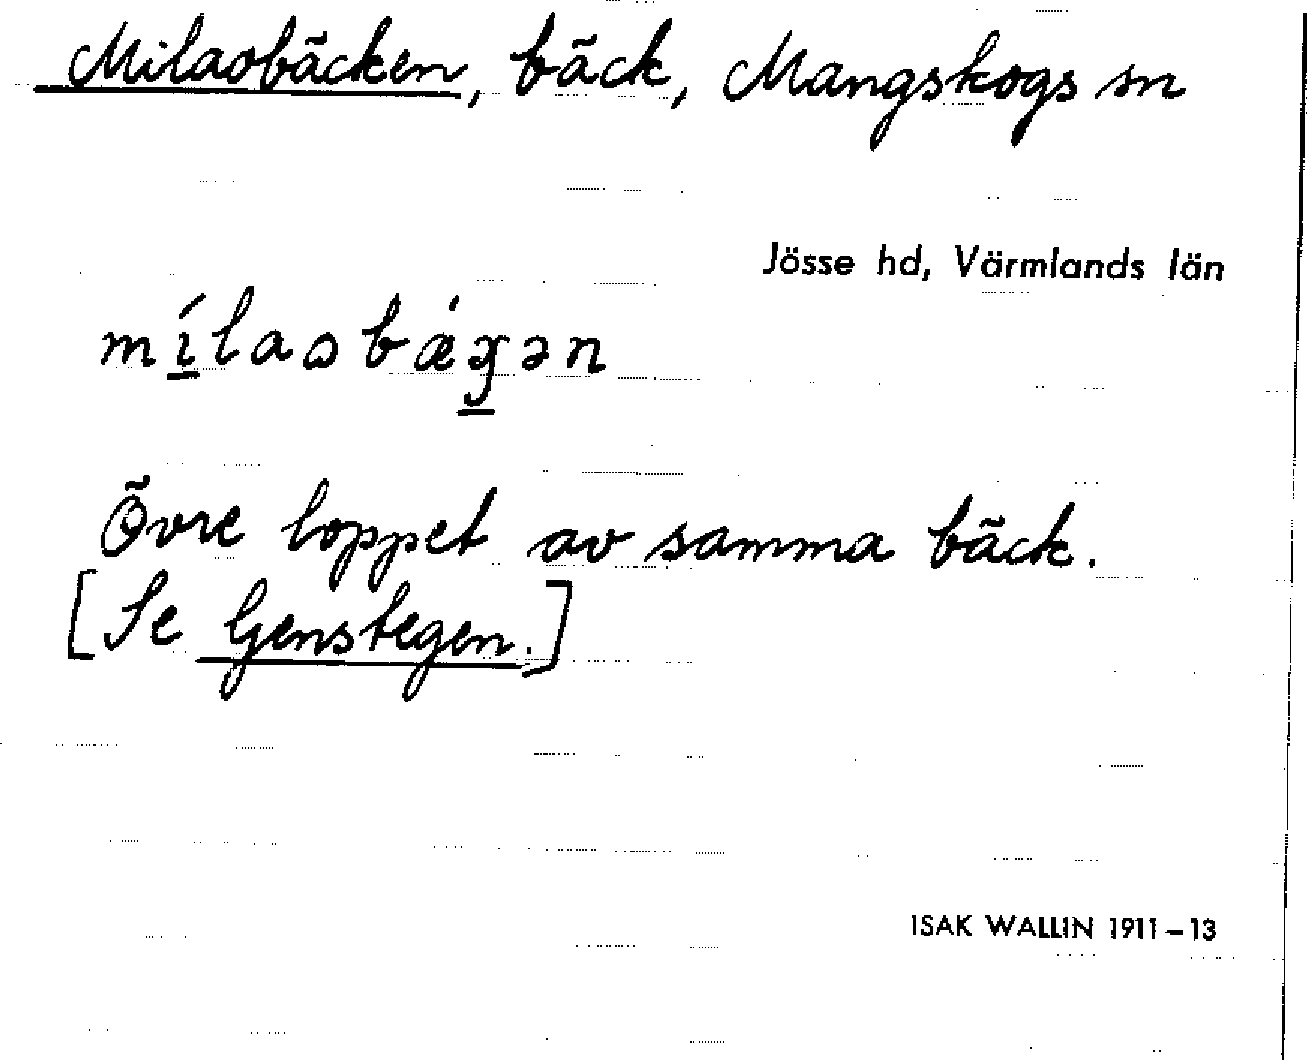 Milaobäcken, bäck, Mangskogs sn
Jösse hd, Värmlands län
Övre loppet av samma bäck.
[Se Genstegen.]
ISAK WALLIN 1911–13